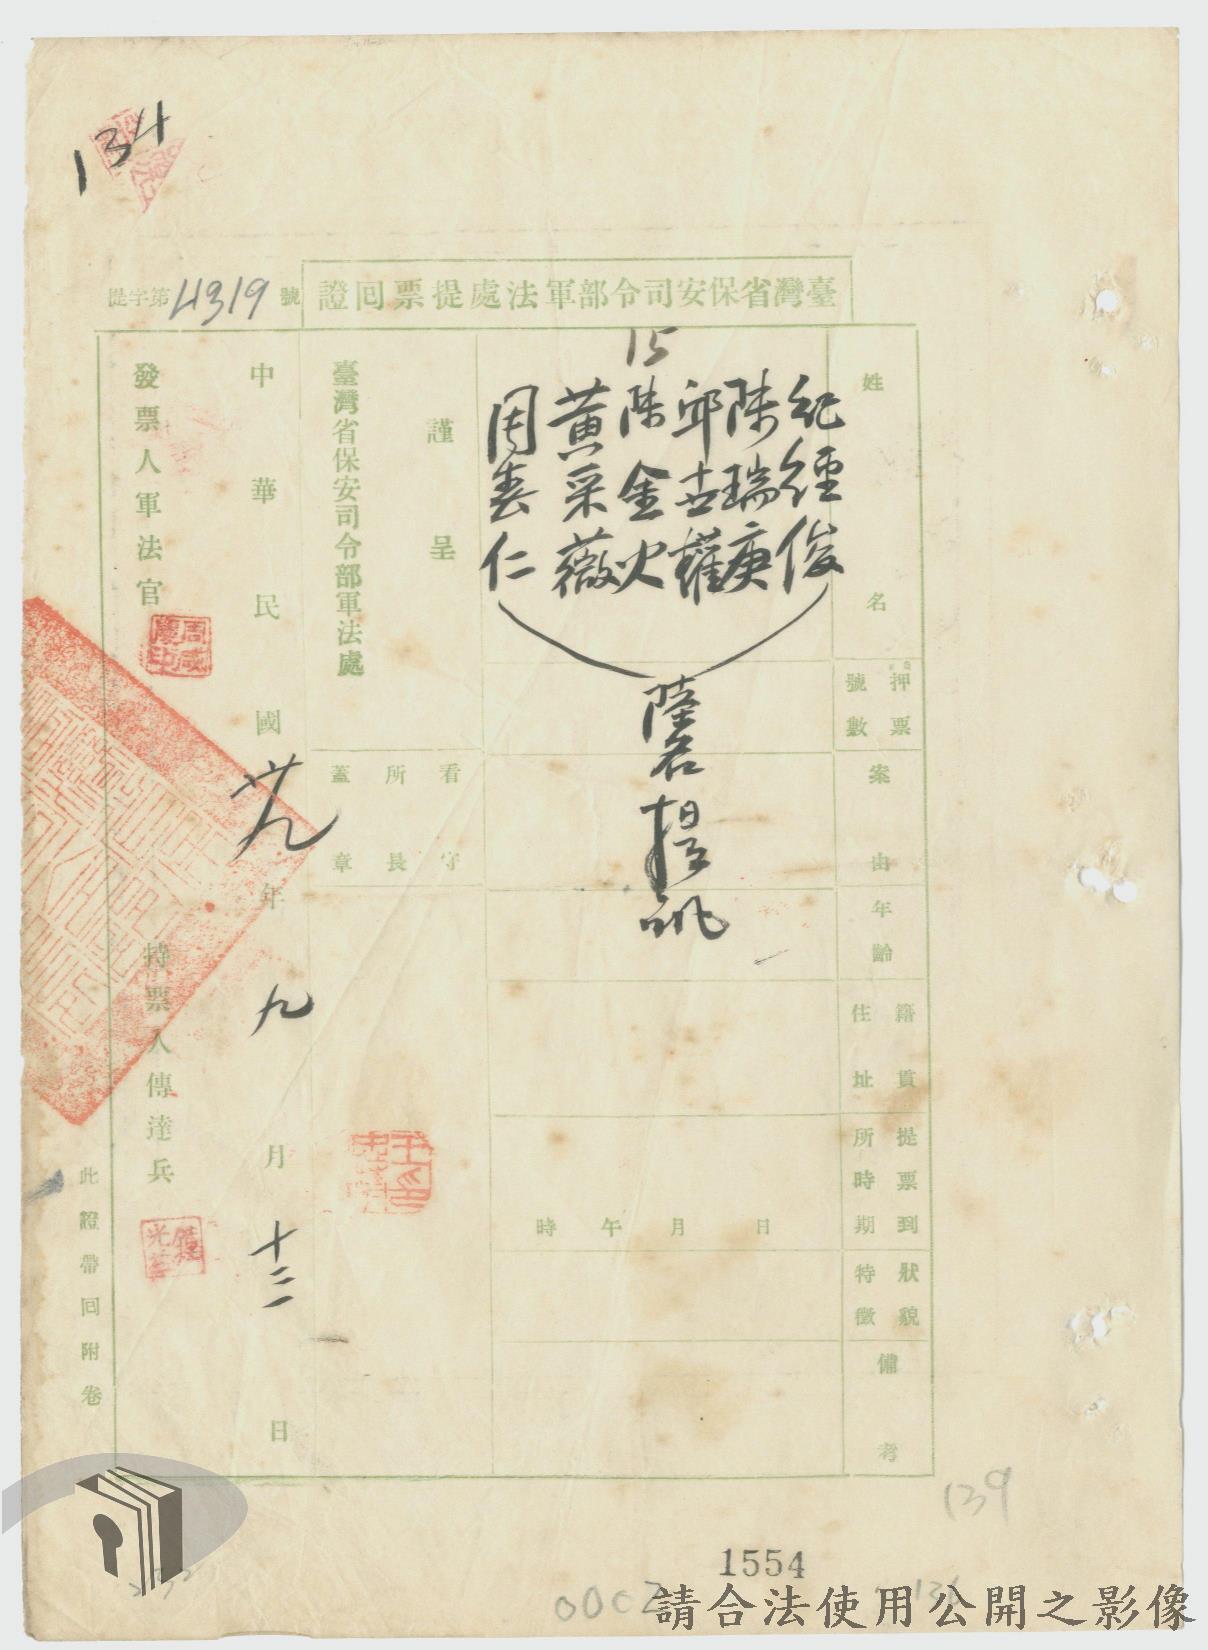 134
臺灣省保安司令部軍法處提票回證
提字第4319號
姓名
押票號數
案由
年齡
籍貫住址
提票到所時期
狀貌特徵
備考
紀經俊
陳瑞庚
邱古權
15
陳金火
黃采薇
周春仁
陸名提訊
日 月 午 時
謹呈
臺灣省保安司令部軍法處
看守所長蓋章
中華民國卅九年九月十三日
發票人軍法官
周咸慶印
持票人傳達兵
此證帶回附卷
139
1554
136
請合法使用公開之影像